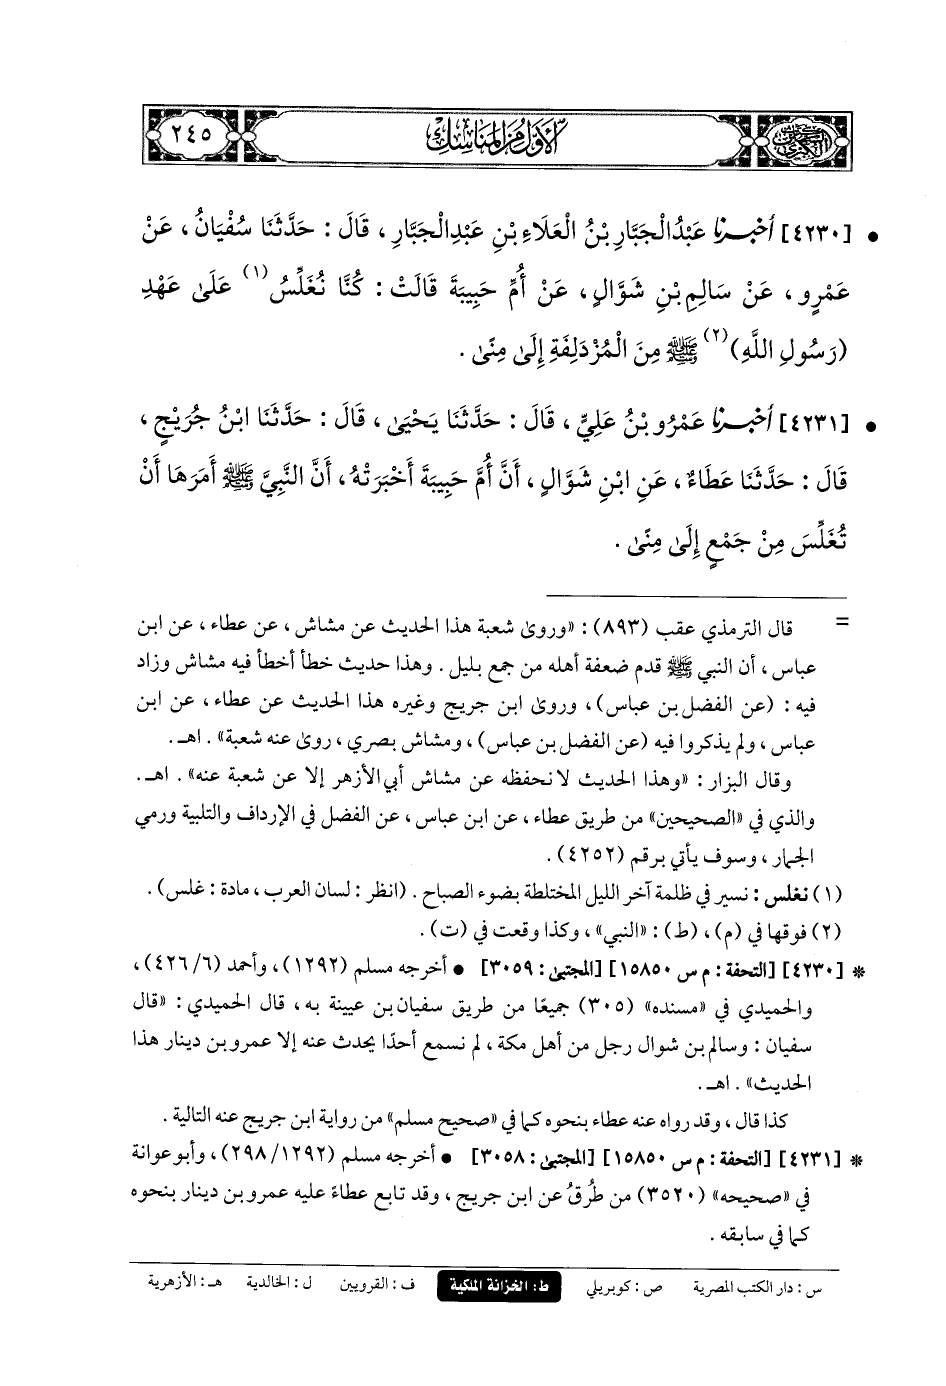 الأول من المناسك
٢٤٥
• [٤٢٣٠] أخبرنا عَبْدُ الْجَبَّارِ بْنُ الْعَلَاءِ بْنِ عَبْدِ الْجَبَّارِ، قَالَ: حَدَّثَنَا سُفْيَانُ، عَنْ
عَمْرٍو، عَنْ سَالِمِ بْنِ شَوَّالٍ، عَنْ أُمِّ حَبِيبَةَ قَالَتْ: كُنَّا نُغَلِّسُ (١) عَلَىٰ عَهْدِ
(رَسُولِ اللَّهِ) (٢) ﷺ مِنَ الْمُزْدَلِفَةِ إِلَىٰ مِنًىٰ.
• [٤٢٣١] أخبرنا عَمْرُو بْنُ عَلِيٍّ، قَالَ: حَدَّثَنَا يَحْيَىٰ، قَالَ: حَدَّثَنَا ابْنُ جُرَيْجٍ،
قَالَ: حَدَّثَنَا عَطَاءٌ، عَنِ ابْنِ شَوَّالٍ، أَنَّ أُمَّ حَبِيبَةَ أَخْبَرَتْهُ، أَنَّ النَّبِيَّ ﷺ أَمَرَهَا أَنْ
تُغَلِّسَ مِنْ جَمْعٍ إِلَىٰ مِنًىٰ.
= قال الترمذي عقب (٨٩٣): «وروىٰ شعبة هذا الحديث عن مشاش، عن عطاء، عن ابن
عباس، أن النبي ﷺ قدم ضعفة أهله من جمع بليل. وهذا حديث خطأ أخطأ فيه مشاش وزاد
فيه: (عن الفضل بن عباس)، وروىٰ ابن جريج وغيره هذا الحديث عن عطاء، عن ابن
عباس، ولم يذكروا فيه (عن الفضل بن عباس)، ومشاش بصري، روىٰ عنه شعبة». اهـ.
وقال البزار: «وهذا الحديث لا نحفظه عن مشاش أبي الأزهر إلا عن شعبة عنه». اهـ.
والذي في «الصحيحين» من طريق عطاء، عن ابن عباس، عن الفضل في الإرداف والتلبية ورمي
الجمار، وسوف يأتي برقم (٤٢٥٢).
(١) نغلس: نسير في ظلمة آخر الليل المختلطة بضوء الصباح. (انظر: لسان العرب، مادة: غلس).
(٢) فوقها في (م)، (ط): «النبي»، وكذا وقعت في (ت).
* [٤٢٣٠] [التحفة: م س ١٥٨٥٠] [المجتبىٰ: ٣٠٥٩] • أخرجه مسلم (١٢٩٢)، وأحمد (٦/ ٤٢٦)،
والحميدي في «مسنده» (٣٠٥) جميعًا من طريق سفيان بن عيينة به، قال الحميدي: «قال
سفيان: وسالم بن شوال رجل من أهل مكة، لم نسمع أحدًا يحدث عنه إلا عمرو بن دينار هذا
الحديث». اهـ.
كذا قال، وقد رواه عنه عطاء بنحوه كما في «صحيح مسلم» من رواية ابن جريج عنه التالية.
* [٤٢٣١] [التحفة: م س ١٥٨٥٠] [المجتبىٰ: ٣٠٥٨] • أخرجه مسلم (١٢٩٢/ ٢٩٨)، وأبو عوانة
في «صحيحه» (٣٥٢٠) من طُرُقٍ عن ابن جريج، وقد تابع عطاءً عليه عمرو بن دينار بنحوه
كما في سابقه.
س: دار الكتب المصرية ص: كوبريلي ط: الخزانة الملكية ف: القرويين ل: الخالدية هـ: الأزهرية